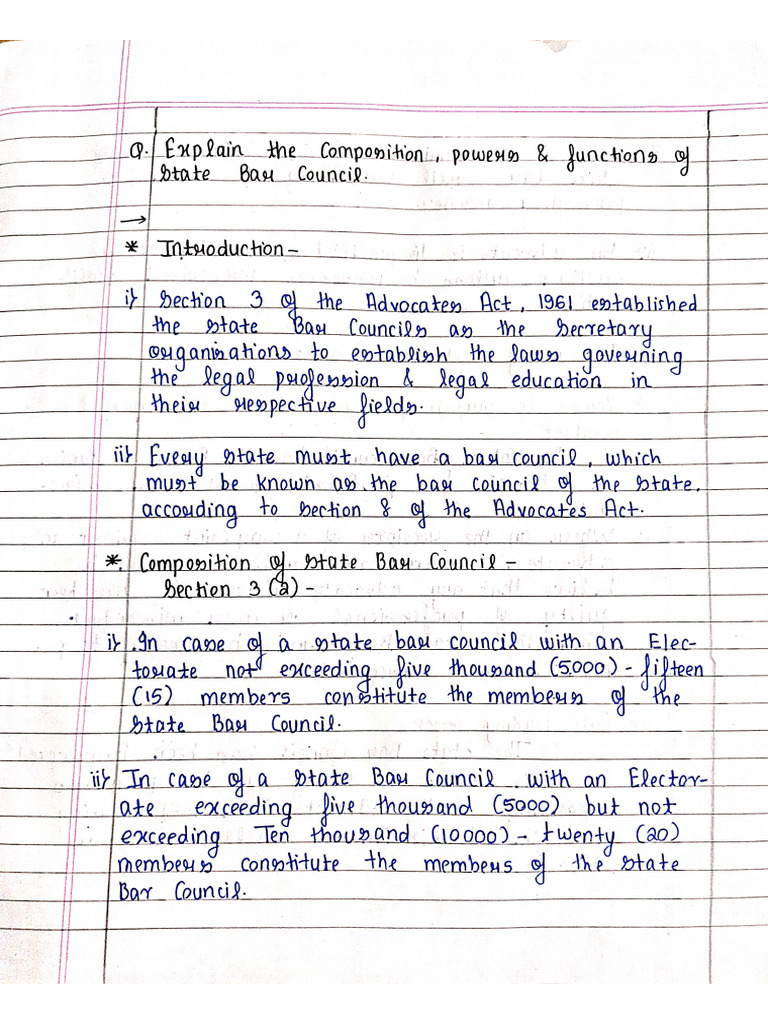 Q. Explain the Composition, powers & functions of
State Bar Council.
→
* Introduction -
i) Section 3 of the Advocates Act, 1961 established
the State Bar Councils as the Secretary
organisations to establish the laws governing
the legal profession & legal education in
their respective fields.
ii) Every state must have a bar council, which
must be known as the bar council of the state,
according to section 8 of the Advocates Act.
* Composition of State Bar Council -
Section 3 (a) -
i) In case of a state bar council with an Elec-
torate not exceeding five thousand (5000) - fifteen
(15) members constitute the members of the
State Bar Council.
ii) In case of a State Bar Council with an Elector-
ate exceeding five thousand (5000) but not
exceeding Ten thousand (10000) - twenty (20)
members constitute the members of the State
Bar Council.